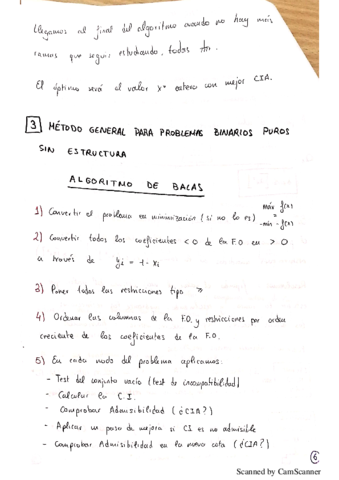 Llegamos al final del algoritmo cuando no hay más
ramas que seguir estudiando, todas
El óptimo será el valor x* entero con mejor CIA.
3 MÉTODO GENERAL PARA PROBLEMAS BINARIOS PUROS
SIN ESTRUCTURA
ALGORITMO DE BALAS
1) Convertir el problema en minimización (si no lo es) máx f(x)
=
-min - f(x)
2) Convertir todos los coeficientes < 0 de la F.O en > 0
a través de yi = 1 - xi
3) Poner todas las restricciones tipo ≥
4) Ordenar las columnas de la F.O. y restricciones por orden
creciente de los coeficientes de la F.O.
5) En cada nodo del problema aplicamos:
- Test del conjunto vacío (test de incompatibilidad)
- Calcular la C.I.
- Comprobar Admisibilidad (¿CIA?)
- Aplicar un paso de mejora si CI es no admisible
- Comprobar Admisibilidad en la nueva cota (¿CIA?)
6
Scanned by CamScanner